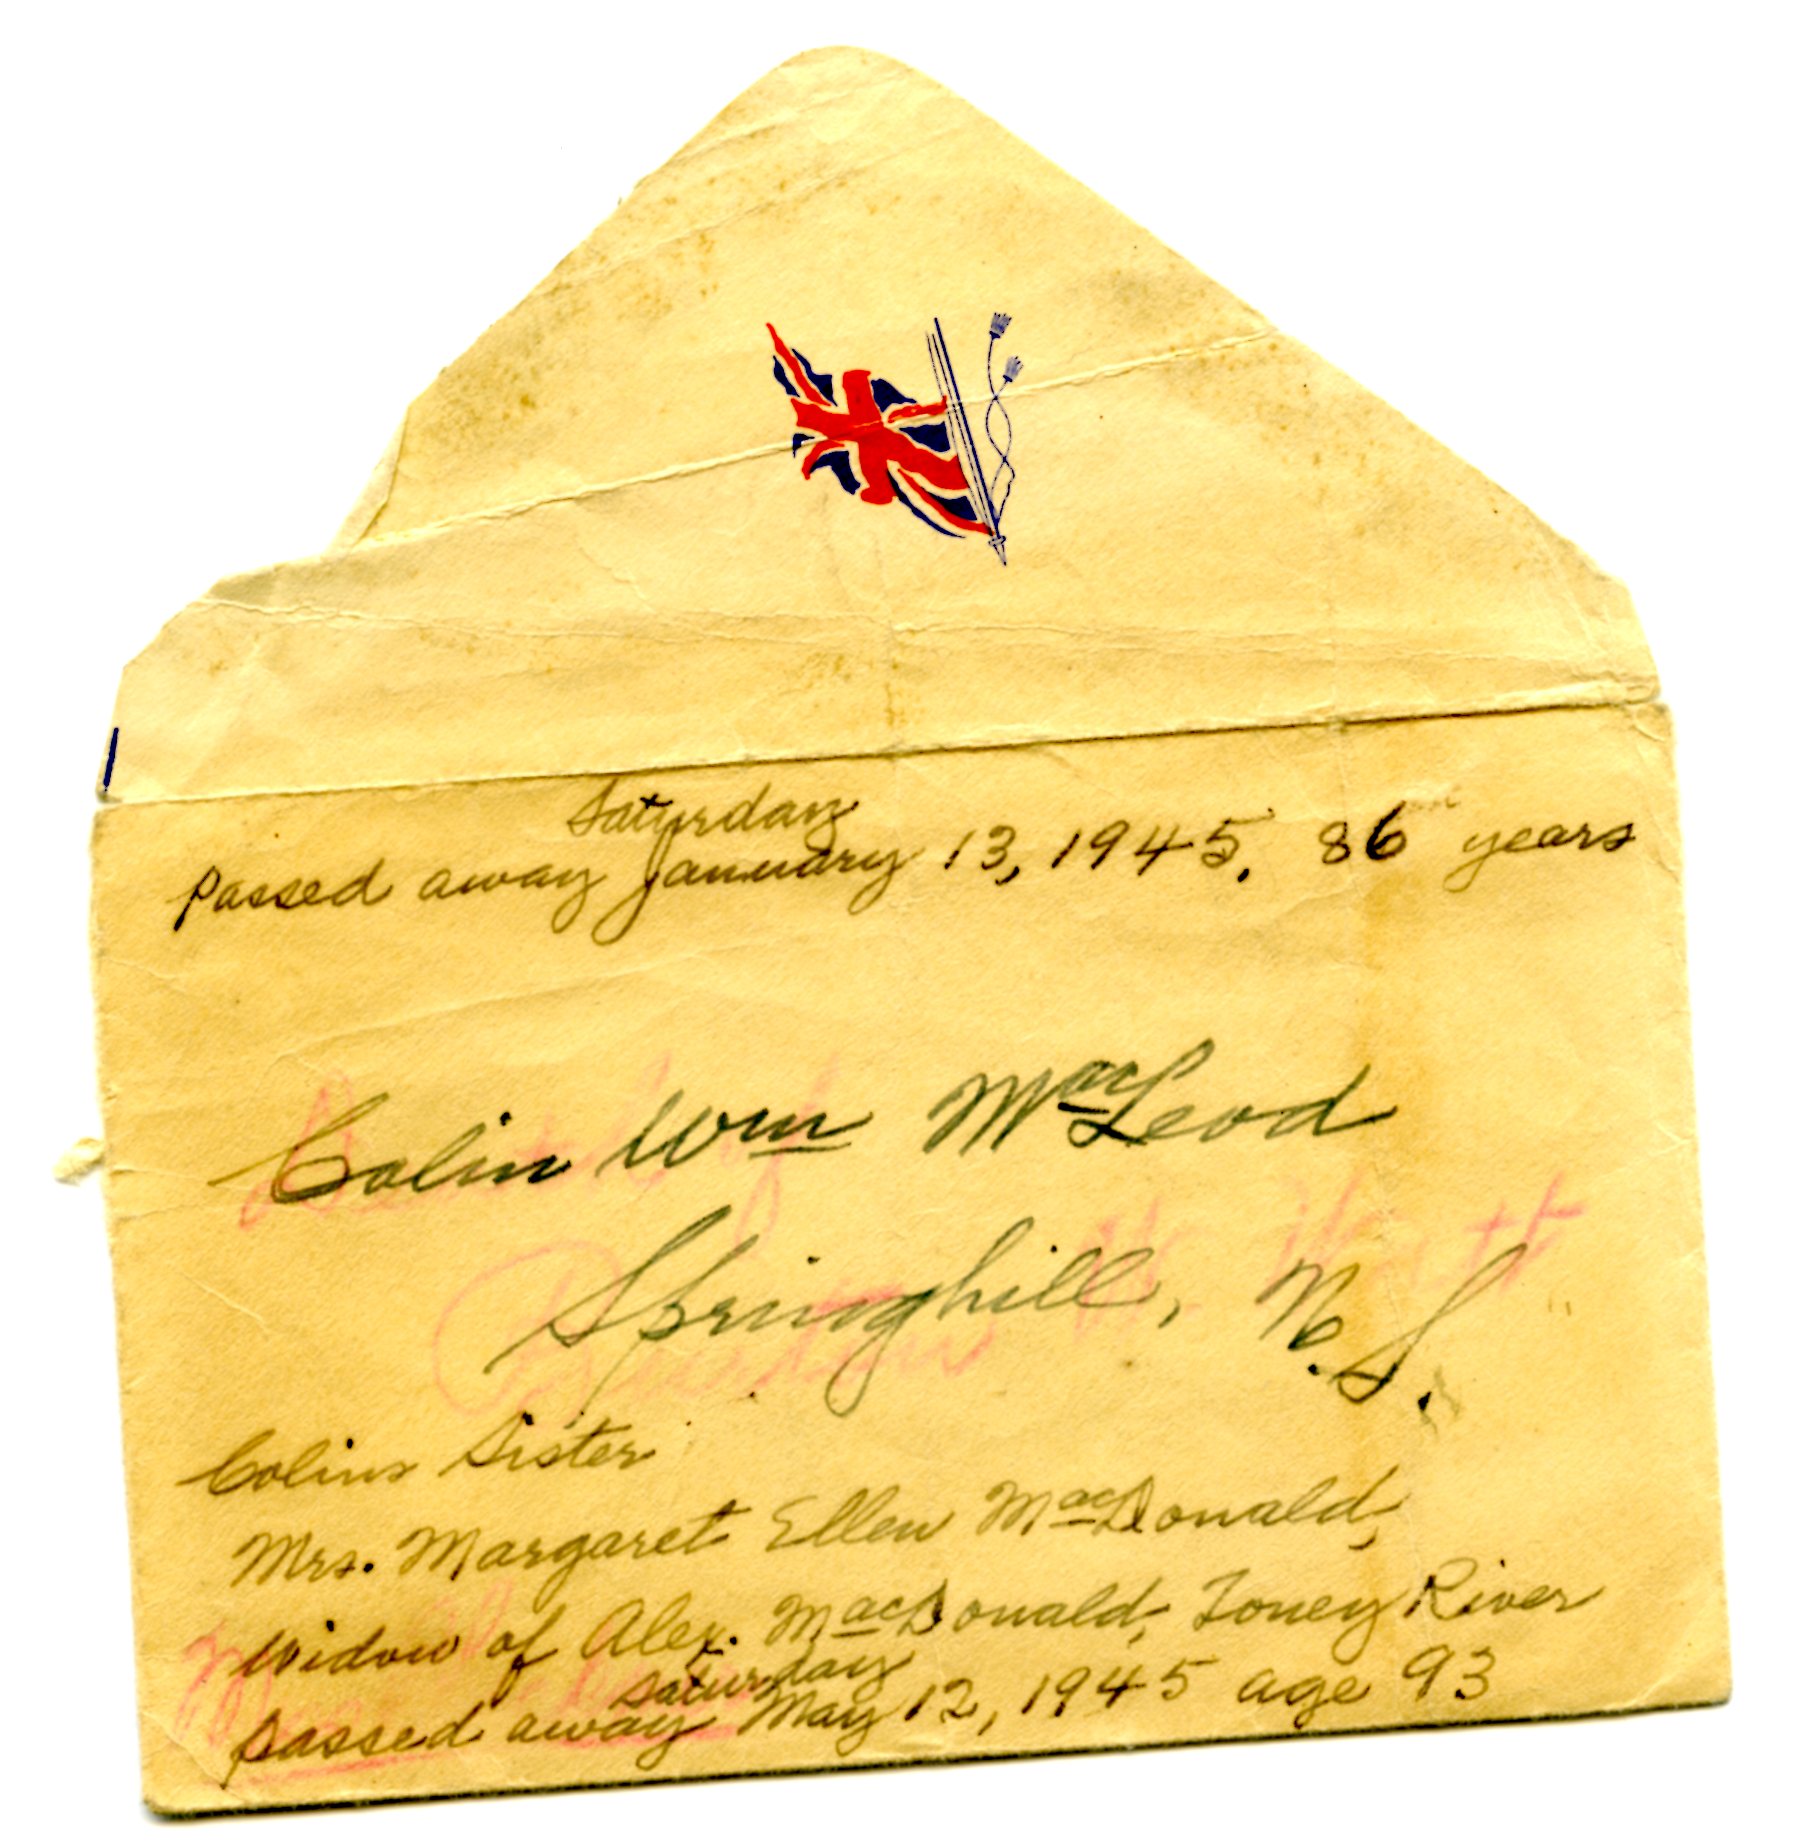 Saturday
passed away January 13, 1945. 86 years
Colin Wm MacLeod
Springhill, N.S.
Colins Sister
Mrs. Margaret Ellen MacDonald,
Widow of Alex. MacDonald, Toney River
Saturday
passed away May 12, 1945 age 93